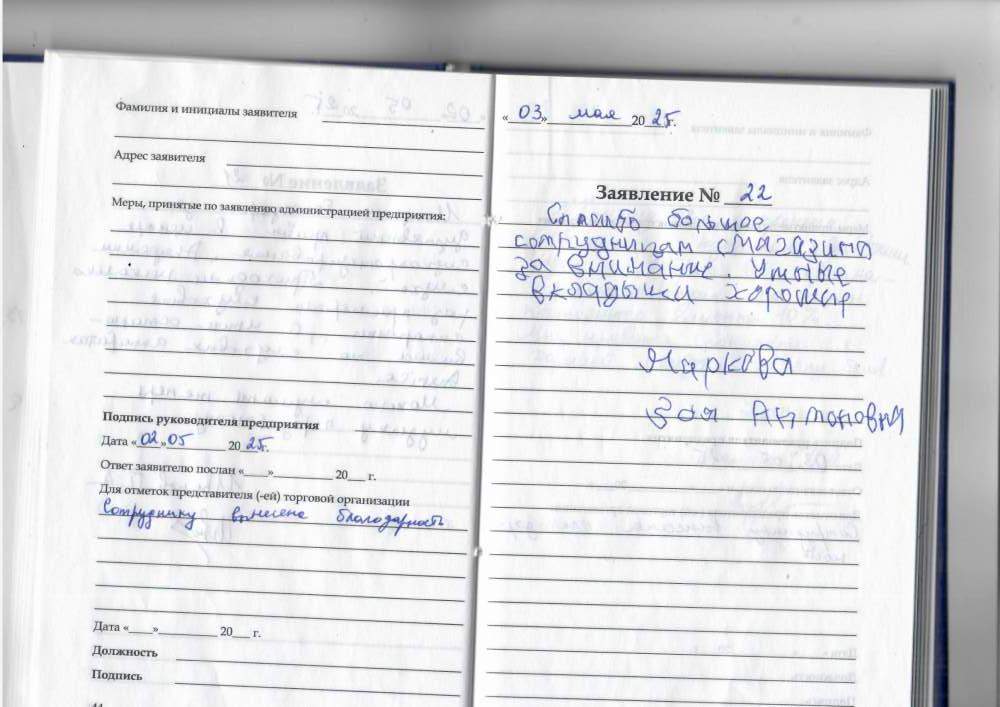 Фамилия и инициалы заявителя
Адрес заявителя
Меры, принятые по заявлению администрацией предприятия:
Подпись руководителя предприятия
Дата «02»05 2025.
Ответ заявителю послан «___»__________ 20___ г.
Для отметок представителя (-ей) торговой организации
Сотруднику вынесена благодарность
Дата «____»__________ 20___ г.
Должность
Подпись
44
«03» мая 2025г.
Заявление № 22
Спасибо большое
сотрудницам магазина
за внимание. Ушные
вкладыши хорошие
Маркова
Зоя Антоновна